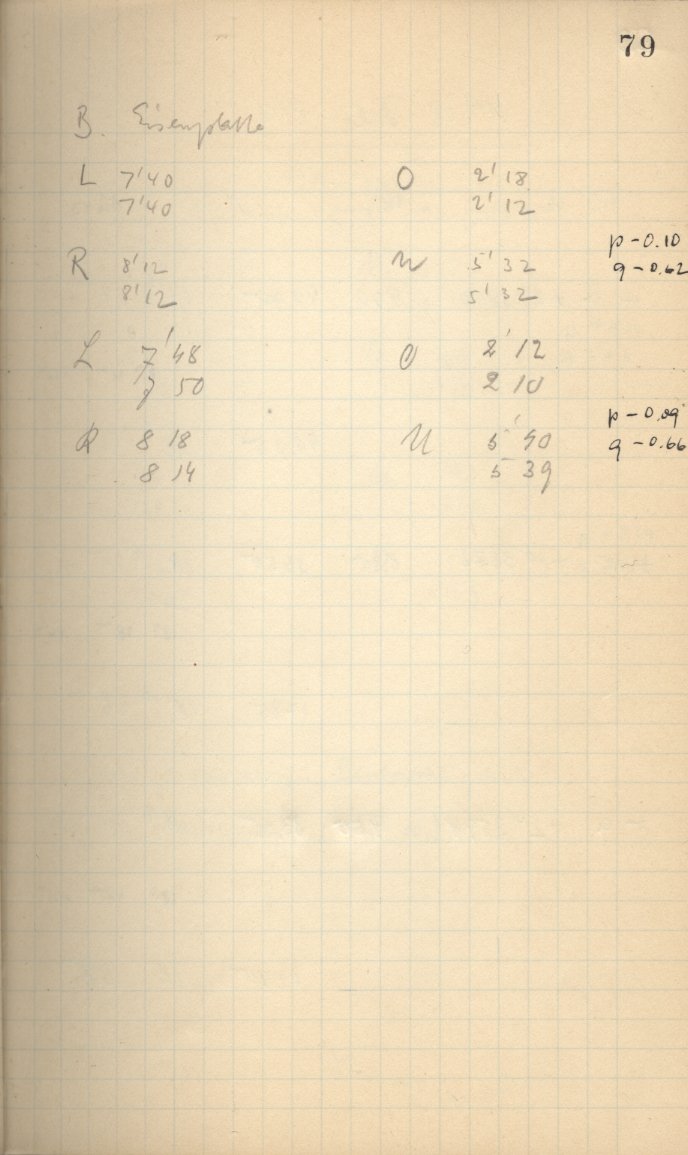 79
B. Eisenplatte
L 7'40 O 2' 18
7'40 2' 12
p - 0.10
R 8'12 U 5' 32 q - 0.62
8'12 5' 32
L 7' 48 O 2' 12
7 50 2 10
p - 0.09
R 8 18 U 5' 40 q - 0.66
8 14 5 39